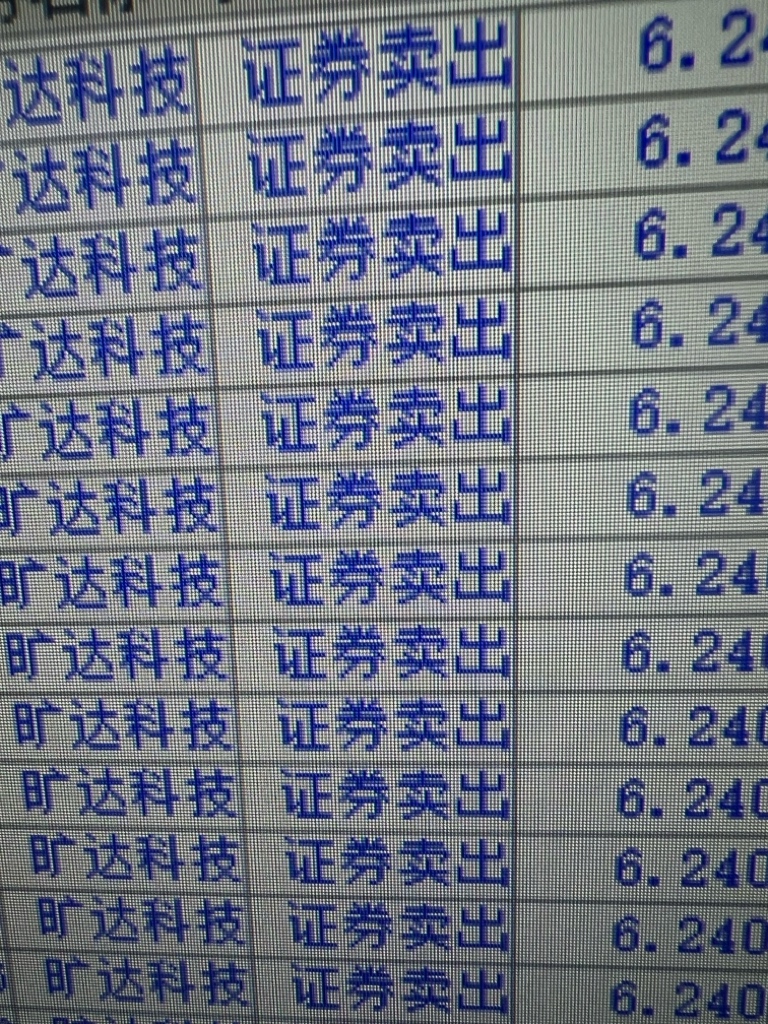 达科技 证券卖出 6.2
达科技 证券卖出 6.24
达科技 证券卖出 6.24
达科技 证券卖出 6.24
旷达科技 证券卖出 6.24
旷达科技 证券卖出 6.24
旷达科技 证券卖出 6.24
旷达科技 证券卖出 6.240
旷达科技 证券卖出 6.240
旷达科技 证券卖出 6.240
旷达科技 证券卖出 6.240
旷达科技 证券卖出 6.240
旷达科技 证券卖出 6.240